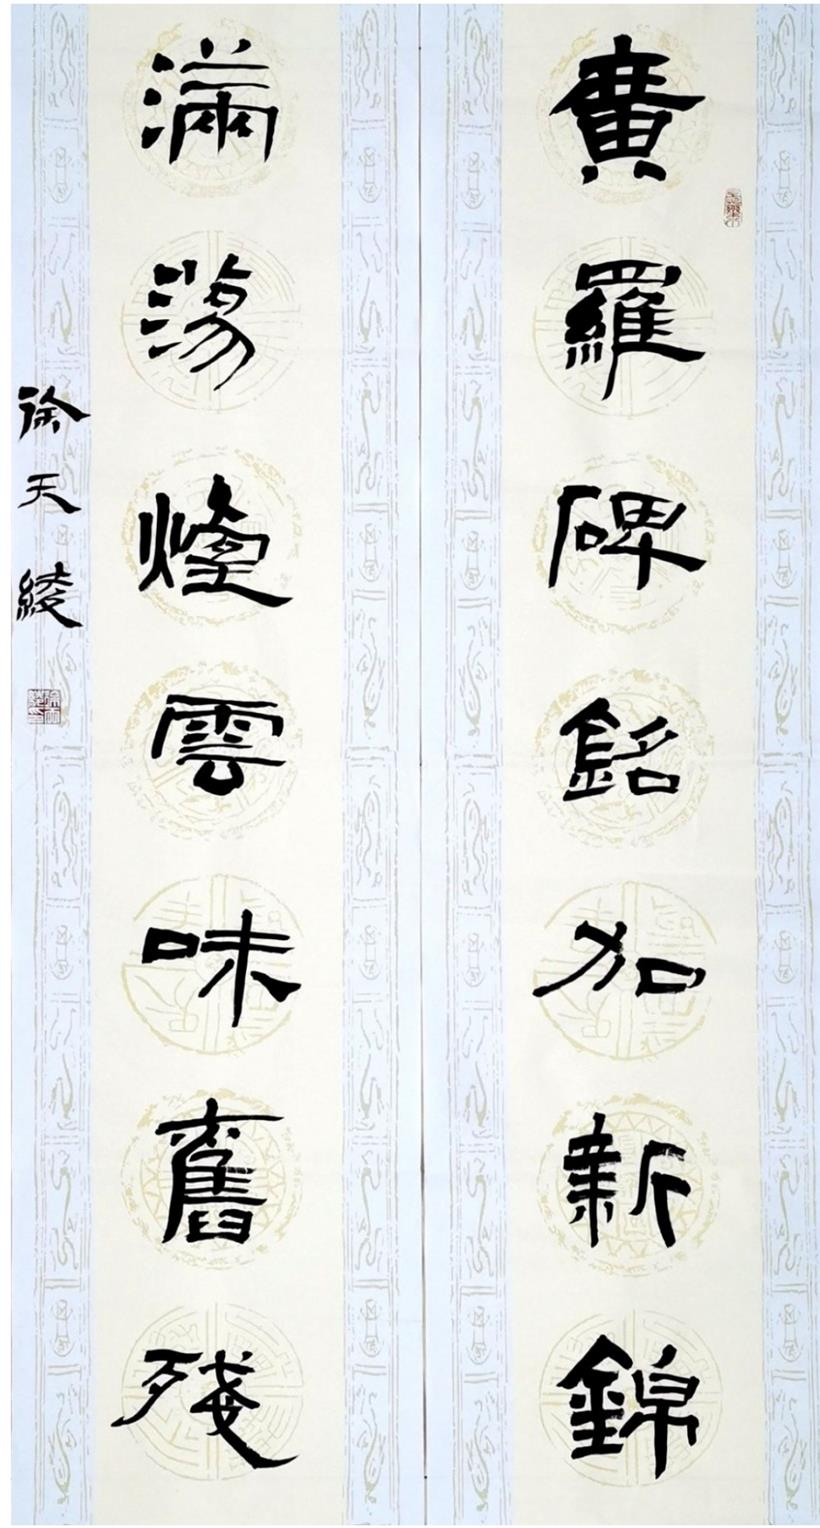 廣羅碑銘加新錦
滿荡煙雲味舊殘
徐天綾